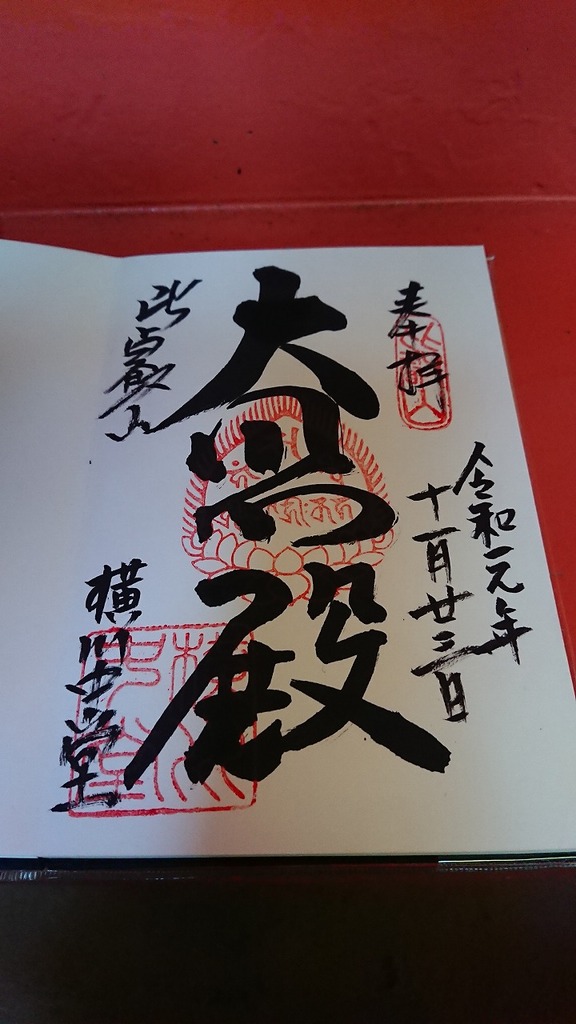 奉拝
令和元年
十一月廿三日
大悲殿
比叡山
横川中堂